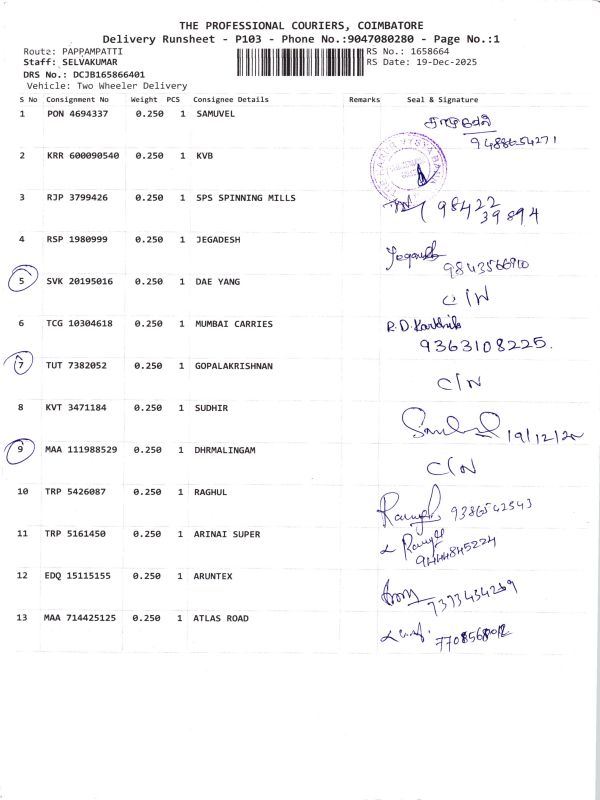 THE PROFESSIONAL COURIERS, COIMBATORE
Delivery Runsheet - P103 - Phone No.:9047080280 - Page No.:1
Route: PAPPAMPATTI RS No.: 1658664
Staff: SELVAKUMAR RS Date: 19-Dec-2025
DRS No.: DCJB165866401
Vehicle: Two Wheeler Delivery
S No Consignment No Weight PCS Consignee Details Remarks Seal & Signature
1 PON 4694337 0.250 1 SAMUVEL
9488654271
2 KRR 600090540 0.250 1 KVB
3 RJP 3799426 0.250 1 SPS SPINNING MILLS
98422
39894
4 RSP 1980999 0.250 1 JEGADESH
Jegadesh
9843566910
5 SVK 20195016 0.250 1 DAE YANG
C/N
6 TCG 10304618 0.250 1 MUMBAI CARRIES
R.D.Karthik
9363108225.
7 TUT 7382052 0.250 1 GOPALAKRISHNAN
C/N
8 KVT 3471184 0.250 1 SUDHIR
19/12/25
9 MAA 111988529 0.250 1 DHRMALINGAM
C/N
10 TRP 5426087 0.250 1 RAGHUL
9386542543
11 TRP 5161450 0.250 1 ARINAI SUPER
9444845224
12 EDQ 15115155 0.250 1 ARUNTEX
7373434269
13 MAA 714425125 0.250 1 ATLAS ROAD